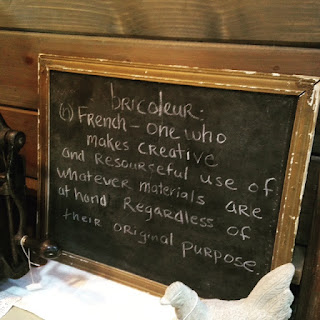 bricoleur:
(n) French - one who
makes creative
and resourseful use of
whatever materials are
at hand Regardless of
their original purpose.